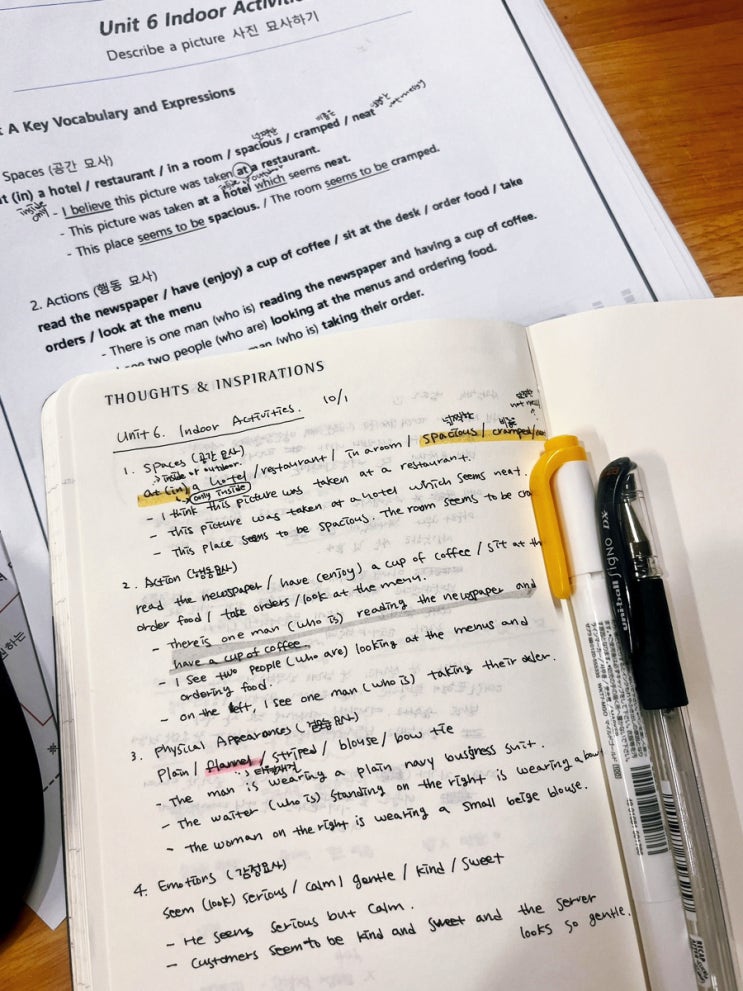 Unit 6 Indoor Activiti
Describe a picture 사진 묘사하기
A Key Vocabulary and Expressions
Spaces (공간 묘사)
넓찍한 비좁은 not messy
t (in) a hotel / restaurant / in a room / spacious / cramped / neat
inside only
- I believe this picture was taken at a restaurant.
- This picture was taken at a hotel which seems neat.
- This place seems to be spacious. / The room seems to be cramped.
2. Actions (행동 묘사)
read the newspaper / have (enjoy) a cup of coffee / sit at the desk / order food / take
orders / look at the menu
- There is one man (who is) reading the newspaper and having a cup of coffee.
see two people (who are) looking at the menus and ordering food.
man (who is) taking their order.
THOUGHTS & INSPIRATIONS
Unit 6. Indoor Activities. 10/1
1. Spaces (공간 묘사)
inside or outdoor.
at (in) a hotel / restaurant / in a room / spacious / cramped /
only inside
- I think this picture was taken at a restaurant.
- This picture was taken at a hotel which seems neat.
- This place seems to be spacious. The room seems to be cra
2. Action (행동묘사)
read the newspaper / have (enjoy) a cup of coffee / sit at th
order food / take orders / look at the menu.
- There is one man (who is) reading the newspaper and
have a cup of coffee.
- I see two people (who are) looking at the menus and
ordering food.
- on the left, I see one man (who is) taking their oder.
3. Physical Appearances
Plain / flannel / striped / blouse / bow tie
- The man is wearing a plain navy business suit.
- The waiter (who is) standing on the right is wearing a bow
- the woman on the right is wearing a small beige blouse.
4. Emotions (감정묘사)
seem (look) serious / calm / gentle / kind / sweet
- He seems serious but calm.
- customers seem to be kind and sweet and the server
looks so gentle.
uniball signo DX